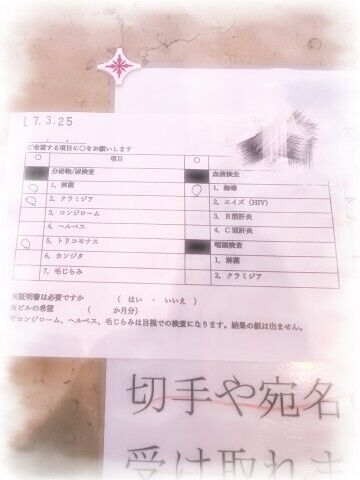 7.3.25
ご希望する項目に○をお願いします
○ 項目 ○
分泌物/尿検査 血液検査
○ 1、淋菌 ○ 1、梅毒
○ 2、クラミジア 2、エイズ（HIV）
3、コンジローム 3、B型肝炎
4、ヘルペス 4、C型肝炎
○ 5、トリコモナス 咽頭検査
6、カンジタ 1、淋菌
7、毛じらみ 2、クラミジア
※証明書は必要ですか （ はい ・ いいえ ）
※ピルの希望 （ か月分）
※コンジローム、ヘルペス、毛じらみは目視での検査になります。結果の紙は出ません。
切手や宛名
受け取れま